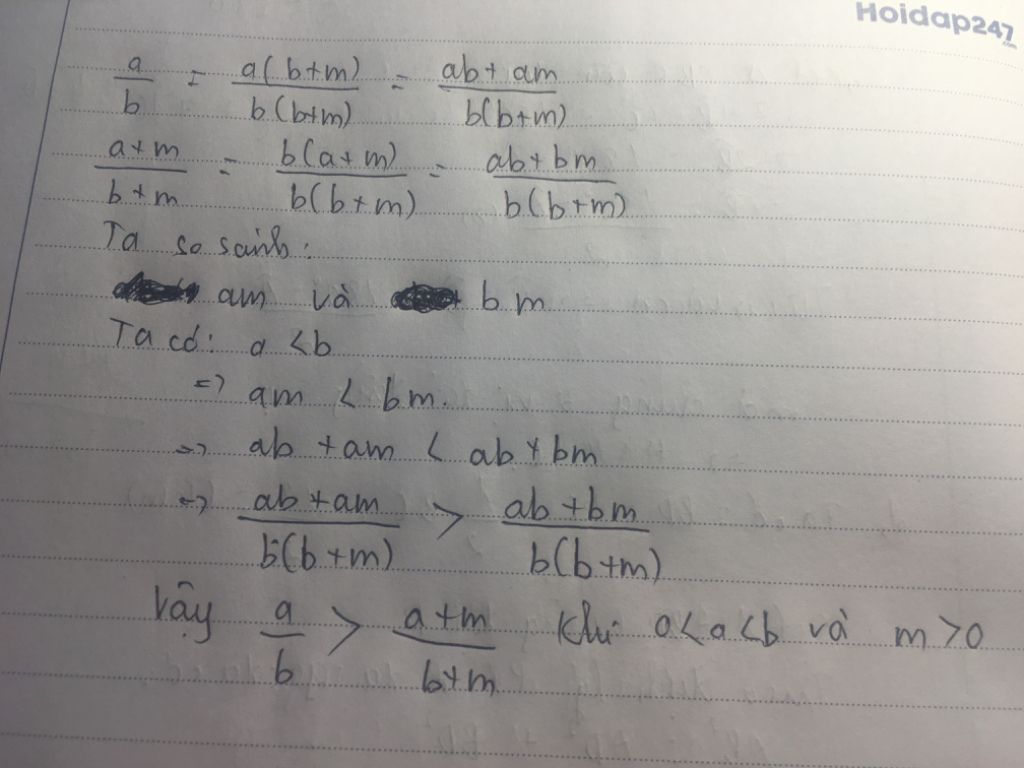 Hoidap247
.com
a/b = a(b+m)/b(b+m) = ab+am/b(b+m)
a+m/b+m = b(a+m)/b(b+m) = ab+bm/b(b+m)
Ta so sánh:
am và bm
Ta có: a < b
=> am < bm.
=> ab + am < ab + bm
=> ab+am/b(b+m) > ab+bm/b(b+m)
Vậy a/b > a+m/b+m khi 0<a<b và m>0